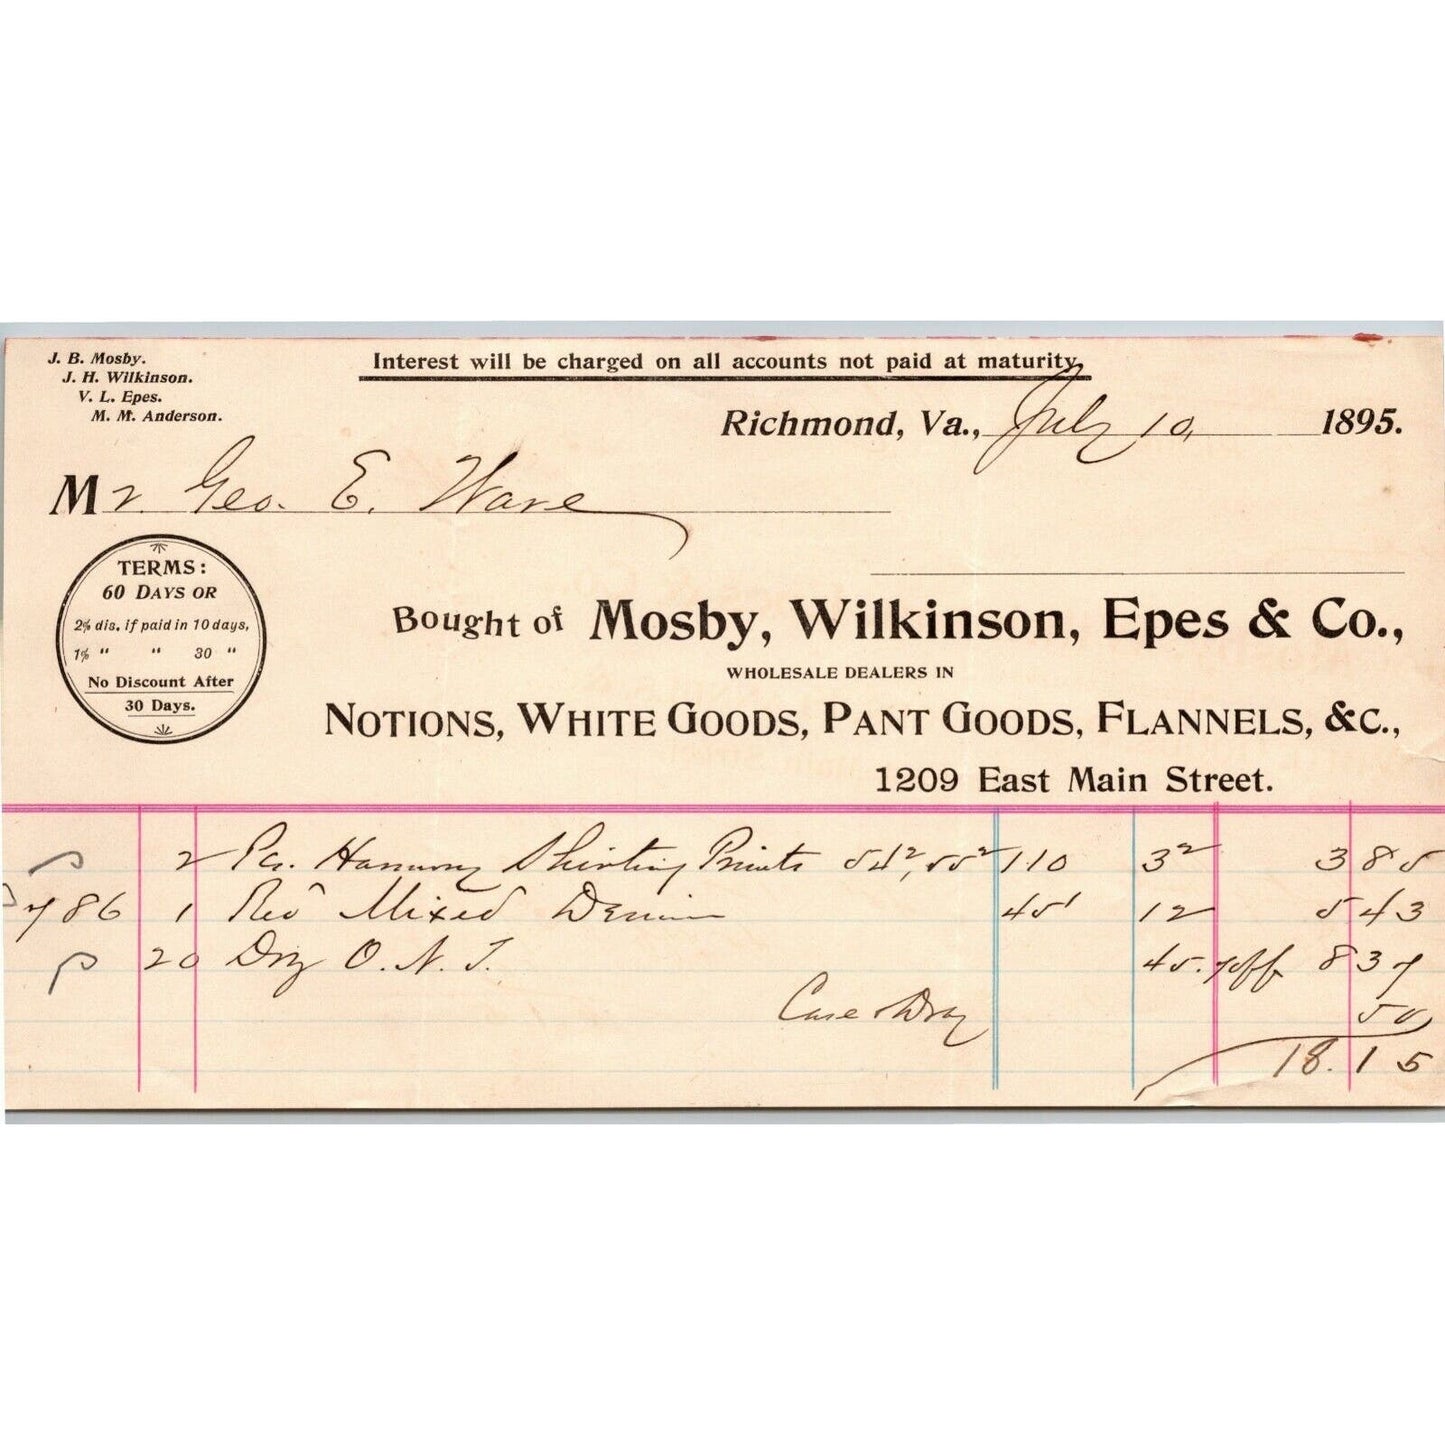 J. B. Mosby.
J. H. Wilkinson.
V. L. Epes.
M. M. Anderson.
Interest will be charged on all accounts not paid at maturity.
Richmond, Va., July 10, 1895.
Mr. Geo. E. Ware
TERMS:
60 DAYS OR
2% dis. if paid in 10 days,
1% " " 30 "
No Discount After
30 Days.
Bought of Mosby, Wilkinson, Epes & Co.,
WHOLESALE DEALERS IN
NOTIONS, WHITE GOODS, PANT GOODS, FLANNELS, &C.,
1209 East Main Street.
2 Pcs. Harmony Shirting Prints 54², 55² 110 3² 3 85
786 1 Mixed Denim 45¹ 12 5 43
20 Doz O. N. T. 45. 7 off 8 37
Case & Dray 50
18.15